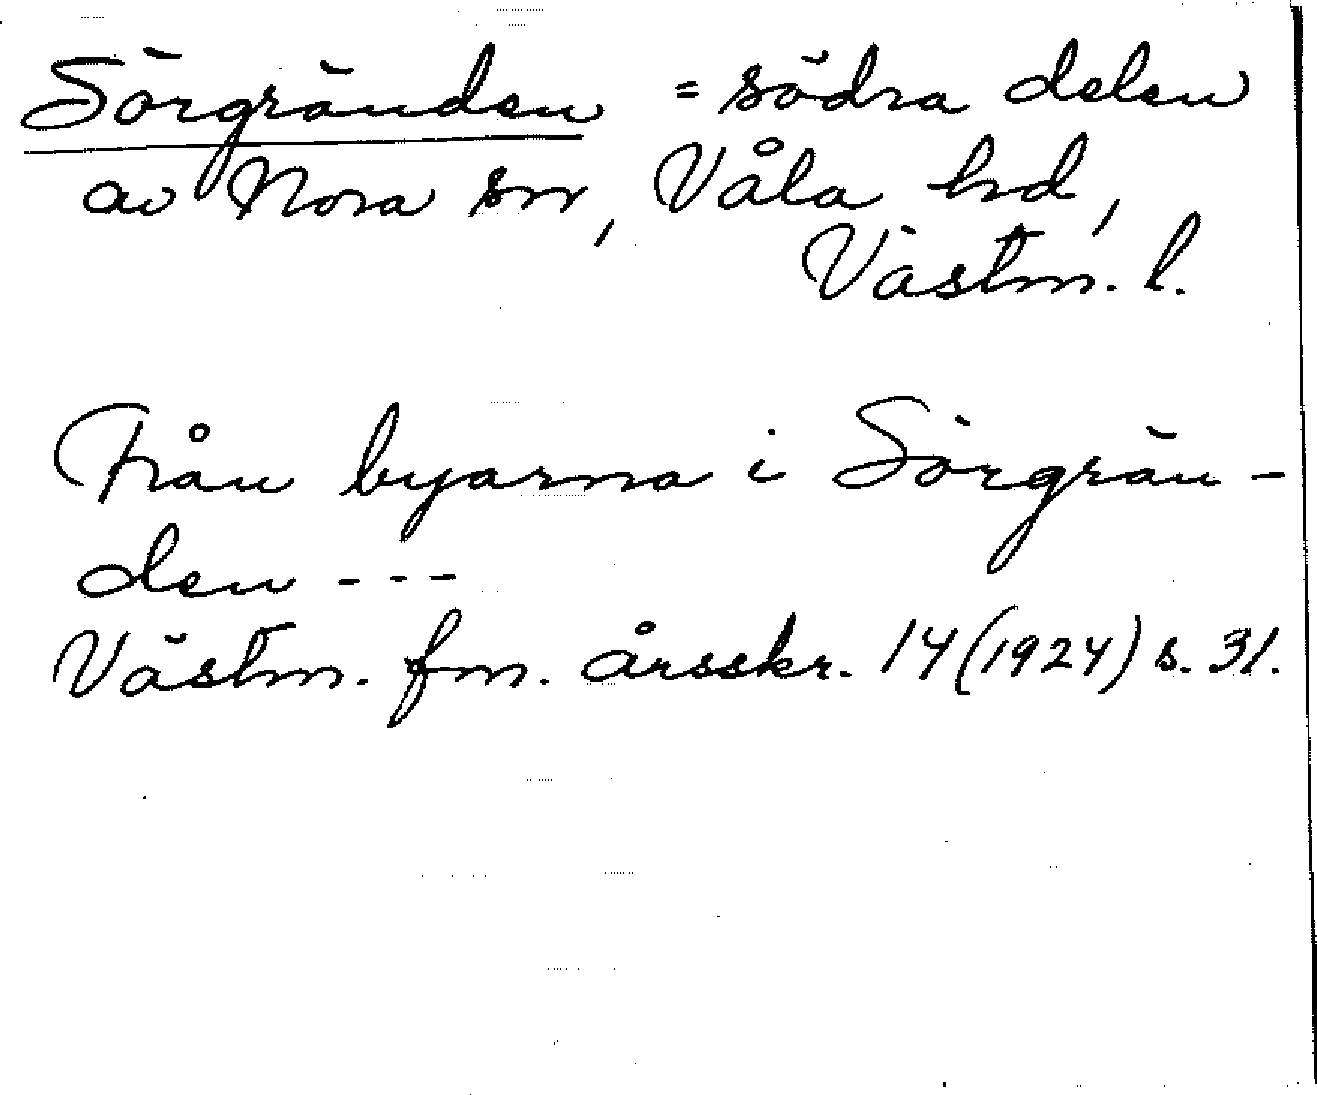 Sörgränden = södra delen
av Nora sn, Våla hd,
Västm. l.
Från byarna i Sörgrän-
den ---
Västm. fm. årsskr. 14 (1924) s. 31.